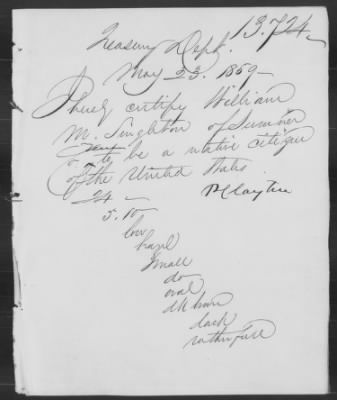 13.724
Treasury Dept.
May 23. 1859
I herey certify William
M. Singleton of Sumner
to be a native citizen
of the United States.
P Clayton
24
5.10
low
hazel
small
do
oval
dk brown
dark
rather full